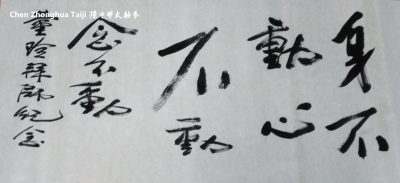 Chen Zhonghua Taiji 陳中華太極拳
身不
動心
不動
念不動
玲拜師紀念